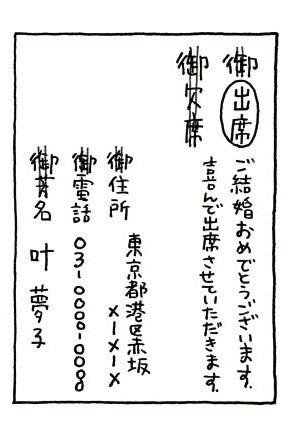 御出席
ご結婚おめでとうございます。
喜んで出席させていただきます。
御欠席
御住所
東京都港区赤坂
×-×-×
御電話
03-0000-0000
御芳名
叶 夢子